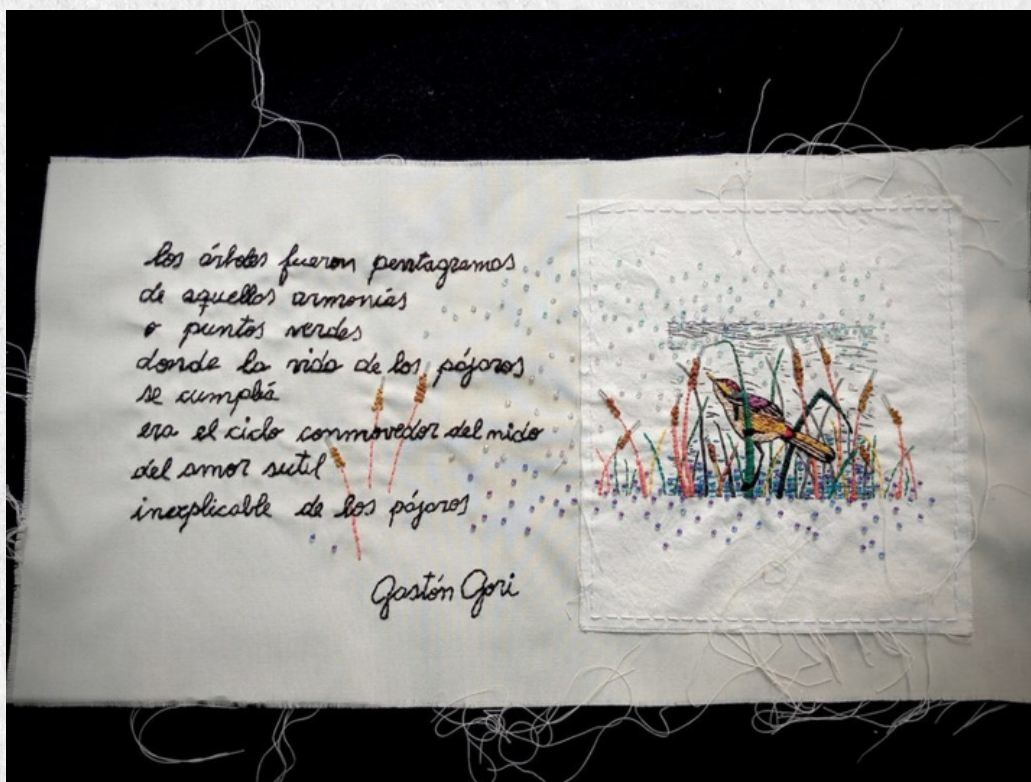 los árboles fueron pentagramas
de aquellas armonías
o puntos verdes
donde la vida de los pájaros
se cumplía
era el ciclo conmovedor del nido
del amor sutil
inexplicable de los pájaros
Gastón Gori